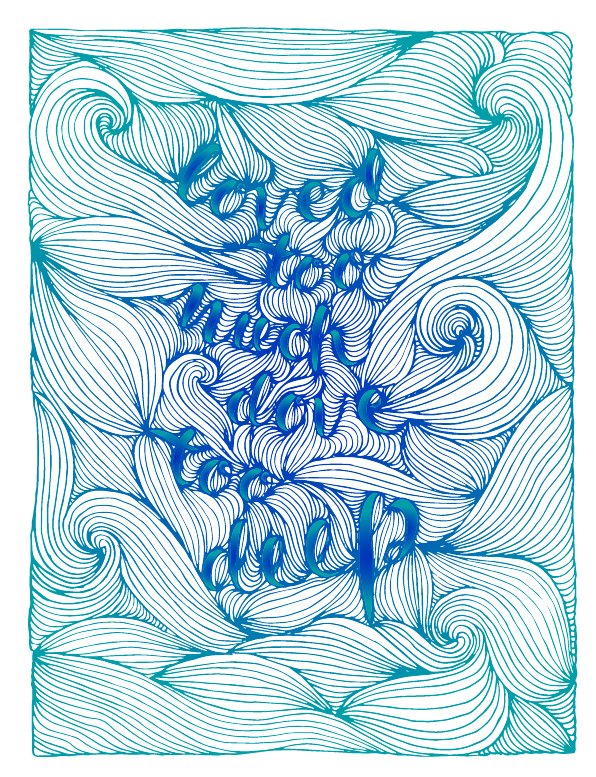 loved
too
much
dove
too
deep